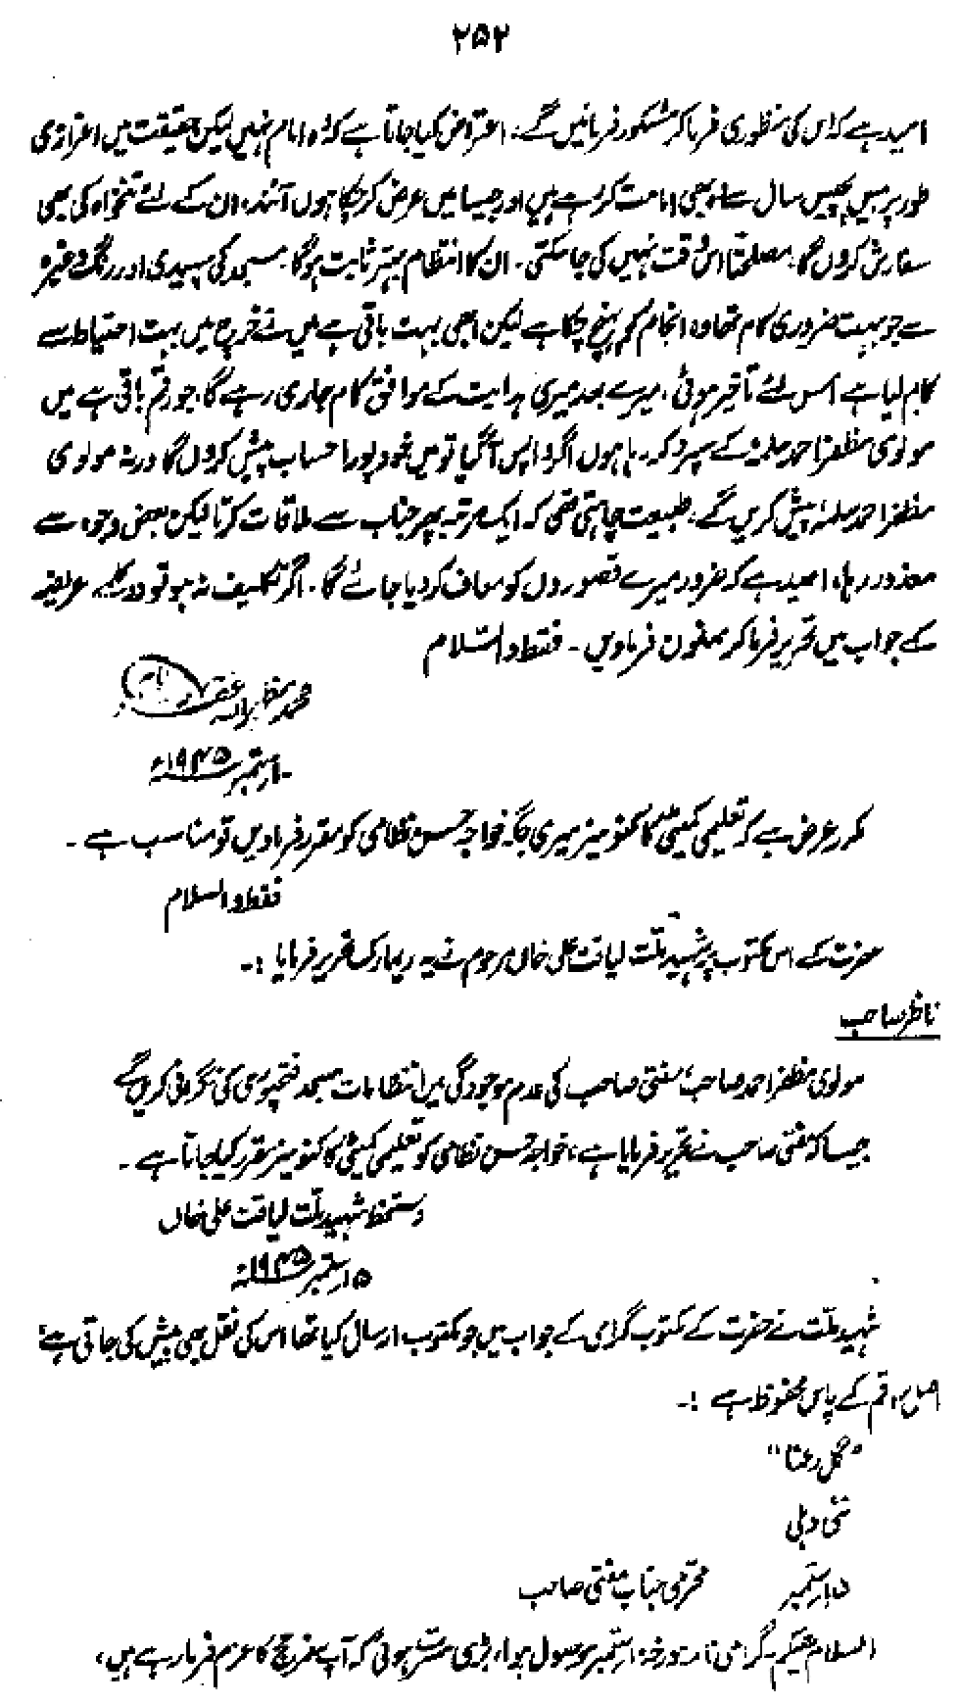 ۲۵۲
امید ہے کہ اس کی منظوری فرما کر مشکور فرمائیں گے۔ اعتراض کیا جاتا ہے کہ وہ امام نہیں لیکن حقیقت میں اعزازی
طور پر میں پچیس سال سے وہ بھی امامت کر رہے ہیں اور جیسا میں عرض کر چکا ہوں آئندہ ان کے لئے تنخواہ کی بھی
سفارش کروں گا، مصلحتاً اس وقت نہیں کی جا سکتی۔ ان کا انتظام بہتر ثابت ہوگا، مسجد کی سپیدی اور رنگ وغیرہ
سے جو بہت ضروری کام تھا وہ انجام کو پہنچ چکا ہے لیکن ابھی بہت باقی ہے میں نے خرچ میں بہت احتیاط سے
کام لیا ہے اس لئے تأخیر ہوئی، میرے بعد میری ہدایت کے موافق کام جاری رہے گا، جو رقم باقی ہے میں
مولوی مظفر احمد سلمہٗ کے سپرد کر رہا ہوں اگر واپس آگیا تو میں خود پورا حساب پیش کروں گا ورنہ مولوی
مظفر احمد سلمہٗ پیش کریں گے، طبیعت چاہتی تھی کہ ایک مرتبہ پھر جناب سے ملاقات کرتا لیکن بعض وجوہ سے
معذور رہا، امید ہے کہ ضرور میرے قصوروں کو معاف کر دیا جائے گا۔ اگر تکلیف نہ ہو تو دو کلمے عریضہ
کے جواب میں تحریر فرما کر ممنون فرماویں۔ فقط والسّلام
محمد مظہر اللہ غفرلہ
۱۰ ستمبر ۱۹۴۵ء
مکرر عرض ہے کہ تعلیمی کمیٹی کا کنوینر میری جگہ خواجہ حسن نظامی کو مقرر فرمادیں تو مناسب ہے۔
فقط والسلام
حضرت کے اس مکتوب پر شہیدِ ملّت لیاقت علی خاں مرحوم نے یہ ریمارک تحریر فرمایا :۔
ناظر صاحب
مولوی مظفر احمد صاحب، مفتی صاحب کی عدم موجودگی میں انتظامات مسجد فتحپوری کی نگرانی کریں گے
جیسا کہ مفتی صاحب نے تحریر فرمایا ہے، خواجہ حسن نظامی کو تعلیمی کمیٹی کا کنوینر مقرر کیا جاتا ہے۔
دستخط شہیدِ ملّت لیاقت علی خاں
۱۵ ستمبر ۱۹۴۵ء
شہید ملّت نے حضرت کے مکتوب گرامی کے جواب میں جو مکتوب ارسال کیا تھا اس کی نقل بھی پیش کی جاتی ہے،
اصل راقم کے پاس محفوظ ہے :۔
"گلِ رعنا"
نئی دہلی
۱۵ ستمبر محترمی جناب مفتی صاحب
السلام علیکم، گرامی نامہ مورخہ ۱۰ ستمبر موصول ہوا، بڑی مسرّت ہوئی کہ آپ سفرِ حج کا عزم فرما رہے ہیں،